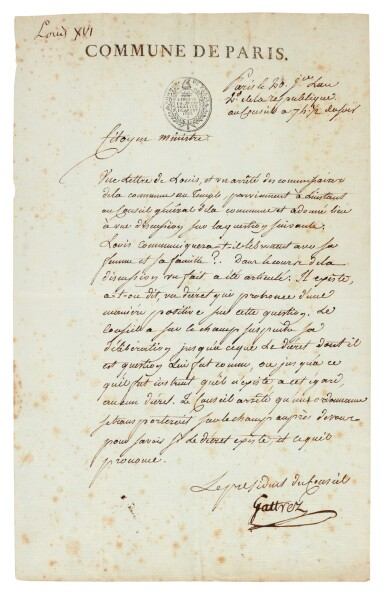 Louis XVI
COMMUNE DE PARIS.
Paris le 20 Jer L'an
2e de la republique
au Conseil a 7 h 1/2 du soir
Citoyen ministre
Une Lettre de Louis, et un arreté des commissaires
de la commune au temple parviennent a L'instant
au Conseil général de la commune et a donné lieu
a une discussion sur la question suivante.
Louis communiquera-t-il librement avec sa
femme et sa famille ? dans le cours de la
discussion un fait a été articulé : Il existe,
a-t-on dit, un décret qui prononce d'une
maniere positive sur cette question. Le
Conseil a sur le champ suspendu sa
déliberation jusqu'a ce que le decret dont il
est question lui fut connu, ou jusqu'a ce
qu'il fut instruit qu'il n'existe a cet egard
aucun décret. Le Conseil arrété qu'une ordonnance
se transporteroit sur le champ auprès de vous
pour savoir si le decret existe, et ce qu'il
prononce.
Le président du Conseil
Gattrez